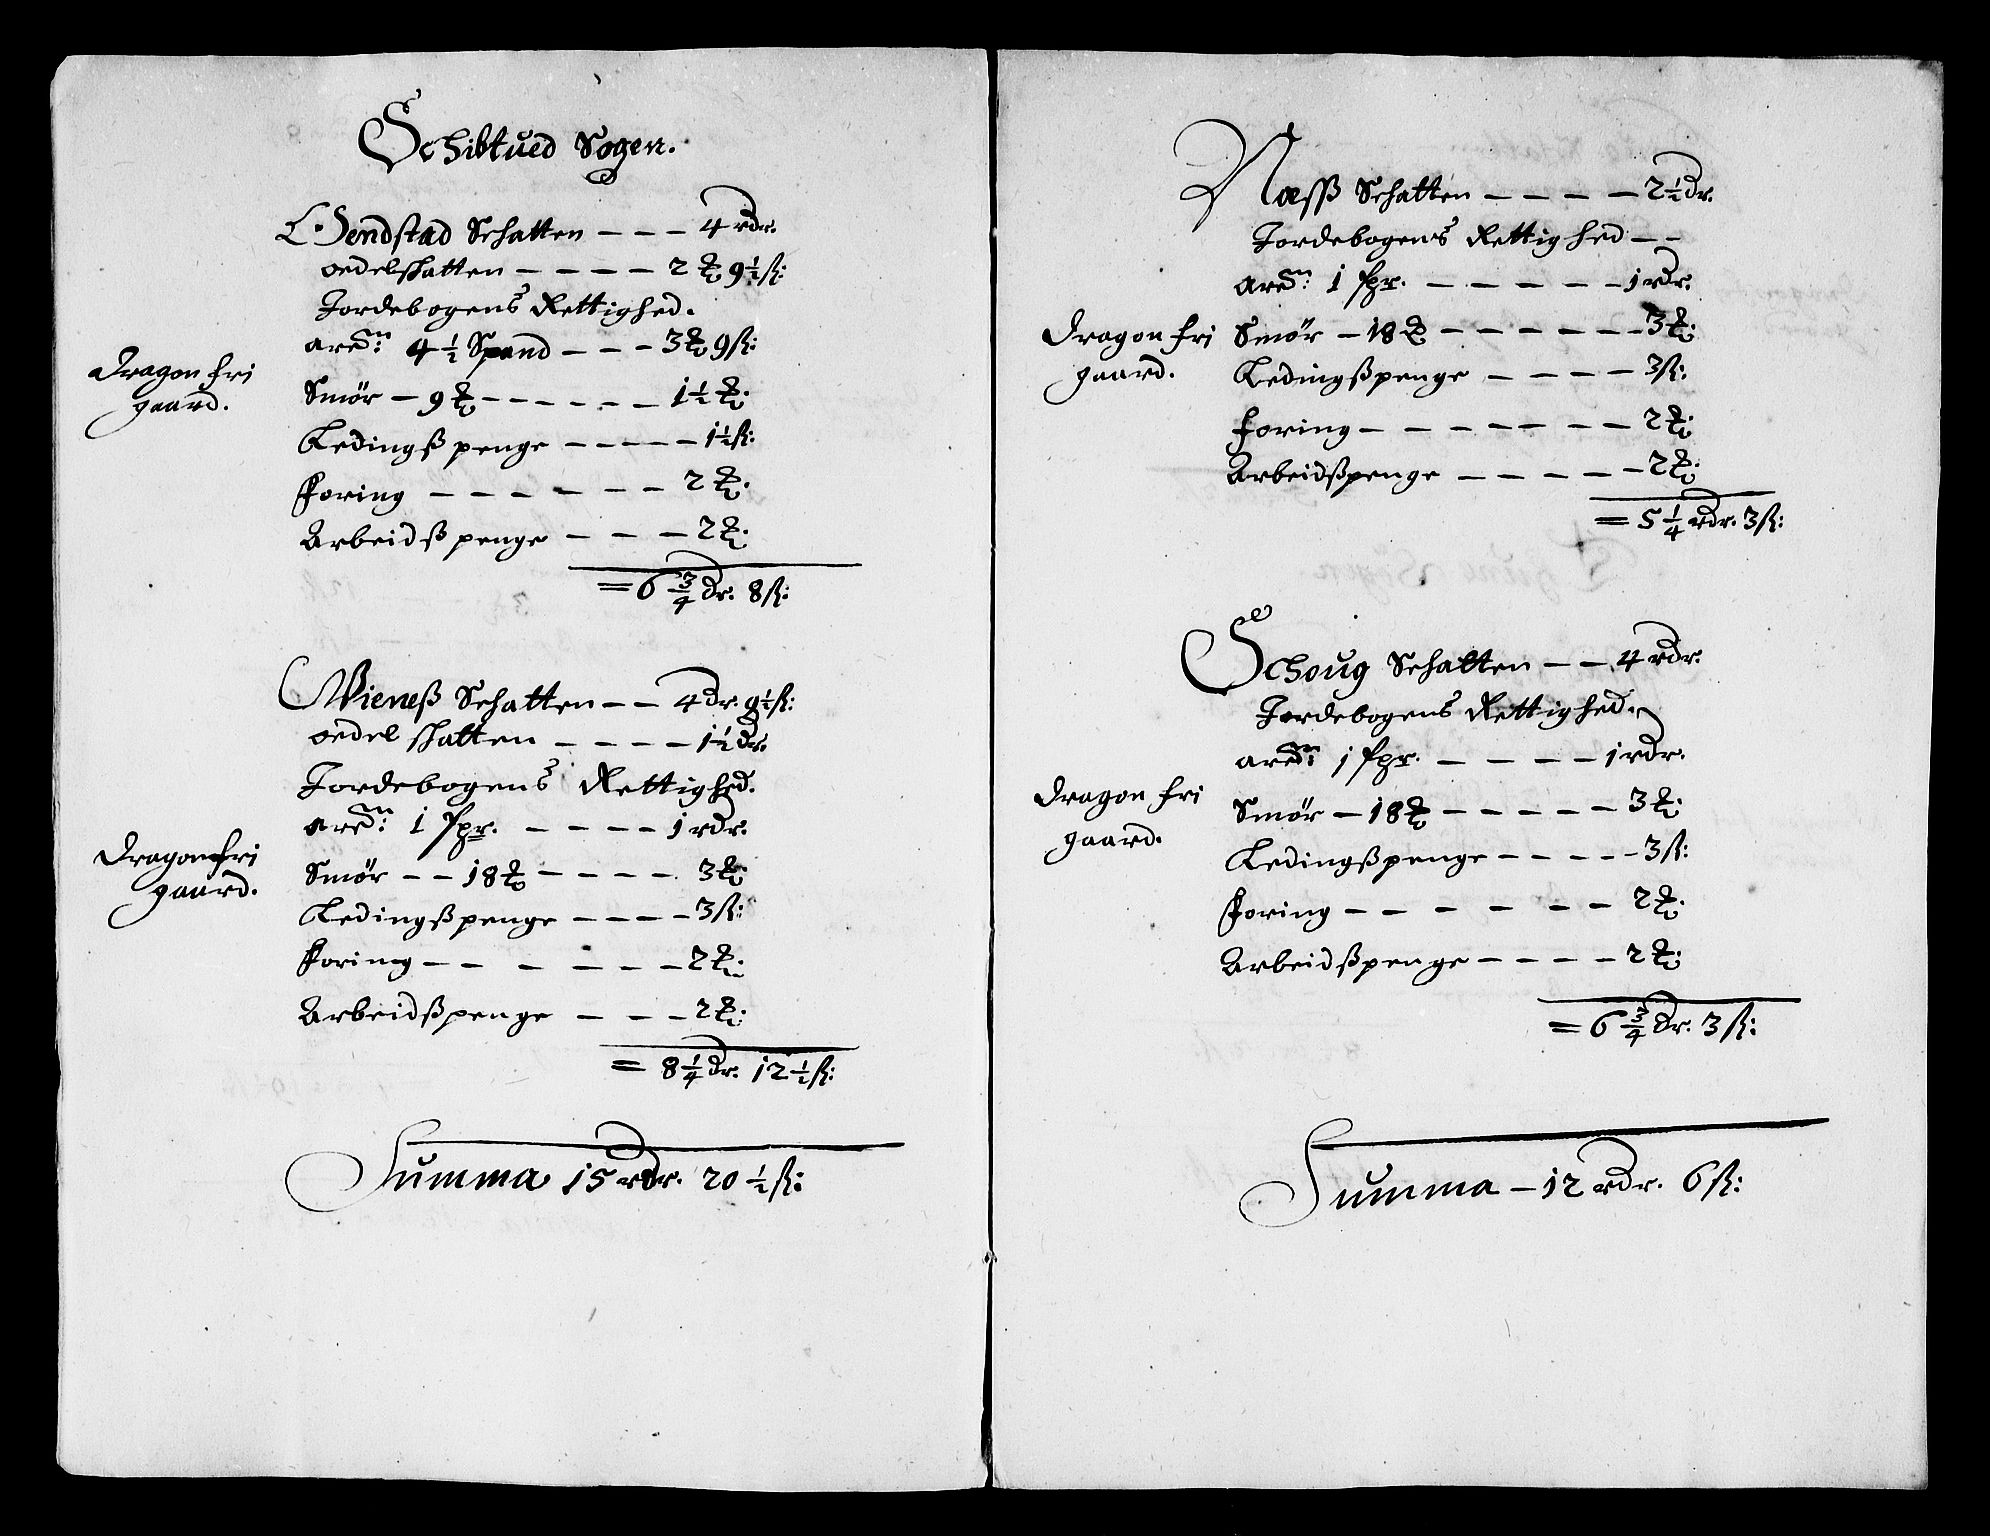 Schibtued Sogen.
Gendstad Schatten - - - 4 rdr.
oedelschatten - - - - 2 ℔ 9½ ß:
Jordebogens Rettighed.
aredn: 4½ Spand - - - 3 ℔ 9 ß:
Dragon fri
gaard.
Smør - 9 ℔ - - - - - - 1½ ℔:
Ledingß penge - - - - - 1½ ß:
Foring - - - - - - 2 ℔:
Arbeidß penge - - - 2 ℔:
= 6¾ dr. 8 ß:
Wieneß Schatten - - 4 dr. 9½ ß:
oedel schatten - - - - 1½ dr.
Jordebogens Rettighed.
aredn: 1 spr. - - - - 1 rdr.
Dragon fri
gaard.
Smør - - 18 ℔ - - - - 3 ℔:
Ledingßpenge - - - - 3 ß:
Foring - - - - - - 2 ℔:
Arbeidßpenge - - - 2 ℔:
= 8¼ dr. 12½ ß:
Summa 15 rdr. 20½ ß:
Næsß Schatten - - - - 2½ dr.
Jordebogens Rettighed - -
aredn: 1 spr. - - - - - 1 rdr.
Dragon fri
gaard.
Smør - 18 ℔ - - - - - - 3 ℔:
Ledingßpenge - - - - 3 ß:
Foring - - - - - - - 2 ℔:
Arbeidßpenge - - - - - 2 ℔:
= 5¼ rdr. 3 ß:
Schoug Schatten - - 4 rdr.
Jordebogens Rettighed.
aredn: 1 spr. - - - - 1 rdr.
Dragon fri
gaard.
Smør - 18 ℔ - - - - - 3 ℔:
Ledingßpenge - - - - - 3 ß:
Foring - - - - - - 2 ℔:
Arbeidßpenge - - - - 2 ℔:
= 6¾ dr. 3 ß:
Summa - 12 rdr. 6 ß: